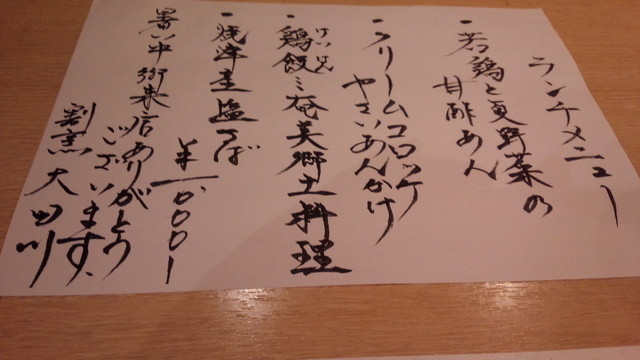 ランチメニュー
・若鶏と夏野菜の
甘酢あん
・クリームコロッケ
やさいあんかけ
・鶏飯ミ奄美郷土料理
けいはん
・焼津産塩さば
¥一、〇〇〇ー
暑い中御来店ありがとう
ございます、
割烹 大田川